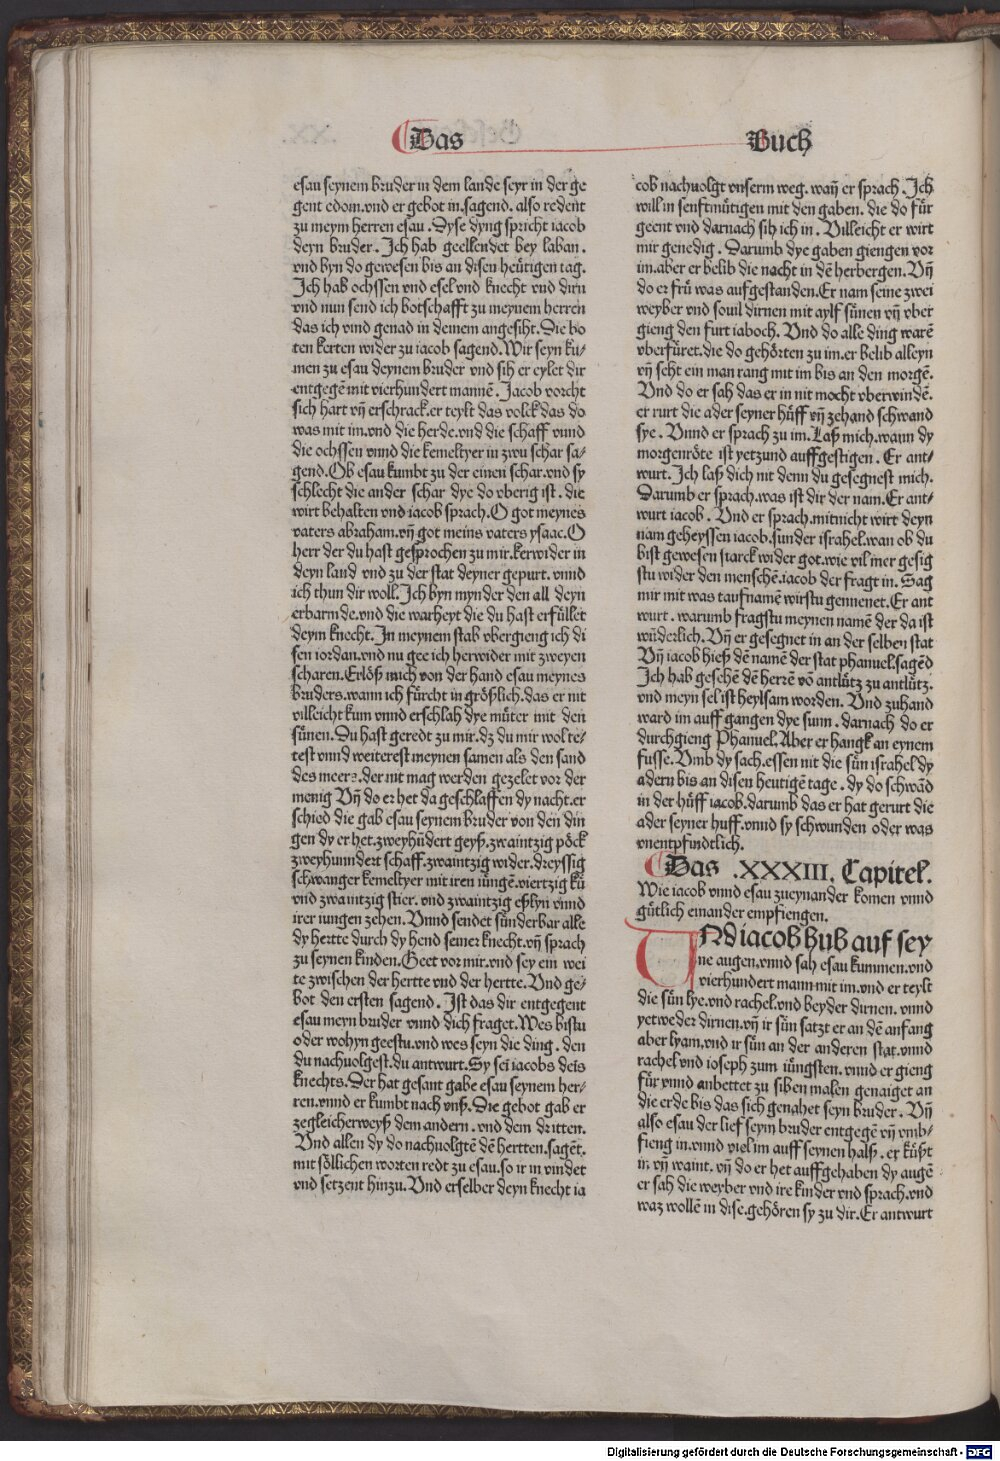 Das Buch
esau seynem bruder in dem lande seyr in der ge
gent edom.vnd er gebot in.sagend. also redent
zu meym herren esau. Dyse dyng spricht iacob
deyn bruder. Ich hab geellendet bey laban.
vnd byn do gewesen bis an disen heütigen tag.
Ich hab ochssen vnd esel vnd knecht vnd dirn
vnd nun send ich botschafft zu meynem herren
das ich vind genad in deinem angesiht. Die bo
ten kerten wider zu iacob sagend. Wir seyn ku/
men zu esau deynem bruder vnd sih er eylet dir
entgegē mit vierhundert mannē. Jacob vorcht
sich hart vn̄ erschrack.er teylt das volck das do
was mit im.vnd die herde.vnd die schaff vnnd
die ochssen vnnd die kemeltyer in zwu schar sa/
gend. Ob esau kumbt zu der einen schar.vnd sy
schlecht die ander schar dye do vberig ist. die
wirt behalten vnd iacob sprach. O got meynes
vaters abraham.vn̄ got meins vaters ysaac. O
herr der du hast gesprochen zu mir.kerwider in
deyn land vnd zu der stat deyner gepurt. vnnd
ich thun dir woll. Ich byn mynder den all deyn
erbarmde.vnd die warheyt die du hast erfüllet
deym knecht. In meynem stab vbergieng ich di
sen iordan.vnd nu gee ich herwider mit zweyen
scharen. Erlöß mich von der hand esau meynes
bruders.wann ich fürcht in größlich.das er nit
villeicht kum vnnd erschlah dye müter mit den
sünen. Du hast geredt zu mir.dz du mir wol te/
test vnnd weiterest meynen samen als den sand
des meers.der nit mag werden gezelet vor der
menig Vn̄ do er het da geschlaffen dy nacht.er
schied die gab esau seynem bruder von den din
gen dy er het.zweyhūdert geyß.zwaintzig pöck
zweyhunndert schaff.zwaintzig wider.dreyssig
schwanger kemeltyer mit iren iūngē.viertzig kü
vnd zwaintzig stier. vnd zwaintzig eßlyn vnnd
irer iungen zehen. Vnnd sendet sünderbar alle
dy hertte durch dy hend seiner knecht.vn̄ sprach
zu seynen kinden. Geet vor mir.vnd sey ein wei
te zwischen der hertte vnd der hertte. Vnd ge/
bot den ersten sagend. Ist das dir entgegent
esau meyn bruder vnnd dich fraget. Wes bistu
oder wohyn geestu.vnd wes seyn die ding. den
du nachuolgest.du antwurt. Sy sei iacobs deis
knechts. Der hat gesant gabe esau seynem her/
ren.vnnd er kumbt nach vnß. Die gebot gab er
zegleicherweyß dem andern. vnd dem dritten.
Vnd allen dy do nachuolgtē dē hertten.sagēt.
mit söllichen worten redt zu esau.so ir in vindet
vnd setzent hinzu. Vnd erselber deyn knecht ia
cob nachuolgt vnserm weg. wan̄ er sprach. Ich
will in senftmütigen mit den gaben. die do für
geent vnd darnach sih ich in. Villeicht er wirt
mir genedig. Darumb dye gaben giengen vor
im.aber er belib die nacht in dē herbergen. Vn̄
do er frü was aufgestanden. Er nam seine zwei
weyber vnd souil dirnen mit aylf sünen vn̄ vber
gieng den furt iaboch. Vnd do alle ding warē
vberfüret.die do gehörten zu im.er belib alleyn
vn̄ seht ein man rang mit im bis an den morgē.
Vnd do er sah das er in nit mocht vberwindē.
er rurt die ader seyner hüff vn̄ zehand schwand
sye. Vnnd er sprach zu im. Laß mich.wann dy
morgenröte ist yetzund auffgestigen. Er ant/
wurt. Ich laß dich nit denn du gesegnest mich.
Darumb er sprach.was ist dir der nam. Er ant/
wurt iacob. Vnd er sprach.mitnicht wirt deyn
nam geheyssen iacob.sunder israhel.wan ob du
bist gewesen starck wider got.wie vil mer gesig
stu wider den menschē.iacob der fragt in. Sag
mir mit was taufnamē wirstu gennenet. Er ant
wurt. warumb fragstu meynen namē der da ist
wūderlich. Vn̄ er gesegnet in an der selben stat
Vn̄ iacob hieß dē namē der stat phanuel.sagēd
Ich hab gesehē dē herrē vō antlütz zu antlütz.
vnd meyn sel ist heylsam worden. Vnd zuhand
ward im auff gangen dye sunn. darnach do er
durchgieng Phanuel. Aber er hangk an eynem
fusse. Vmb dy sach.essen nit die sün israhel dy
adern bis an disen heutigē tage. dy do schwād
in der hüff iacob.darumb das er hat gerurt die
ader seyner huff.vnnd sy schwunden oder was
vnentpfindtlich.
Das .XXXIII. Capitel.
Wie iacob vnnd esau zueynander komen vnnd
gütlich einander empfiengen.
VNd iacob hub auf sey
ne augen.vnnd sah esau kummen.vnd
vierhundert mann mit im.vnd er teylt
die sün lye.vnd rachel.vnd beyder dirnen. vnnd
yetweder dirnen.vn̄ ir sün satzt er an dē anfang
aber lyam.vnd ir sün an der anderen stat.vnnd
rachel vnd ioseph zum iüngsten. vnnd er gieng
für vnnd anbettet zu siben malen genaiget an
die erde bis das sich genahet seyn bruder. Vn̄
also esau der lief seym bruder entgegē vn̄ vmb/
fieng in.vnnd viel im auff seynen halß. er küßt
in vn̄ waint. vn̄ do er het auffgehaben dy augē
er sah die weyber vnd ire kinder vnd sprach.vnd
waz wollē in dise.gehören sy zu dir. Er antwurt
Digitalisierung gefördert durch die Deutsche Forschungsgemeinschaft - DFG